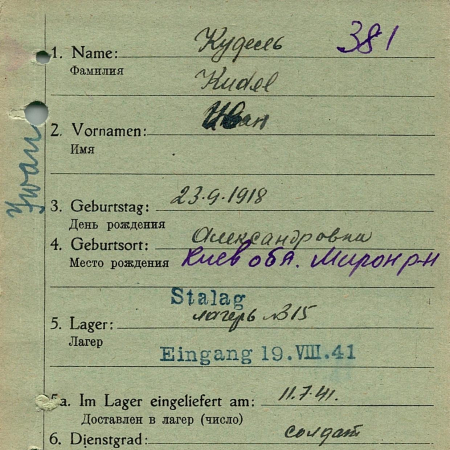 381
1. Name: Кудель
Фамилия
Kudel
Иван
2. Vornamen:
Имя
Iwan
3. Geburtstag: 23.9.1918
День рождения
4. Geburtsort: Александровка
Место рождения Киев обл. Мирон р-н
Stalag
5. Lager: лагерь №315
Лагер
Eingang 19. VIII. 41
5a. Im Lager eingeliefert am: 11.7.41.
Доставлен в лагер (число)
6. Dienstgrad: солдат